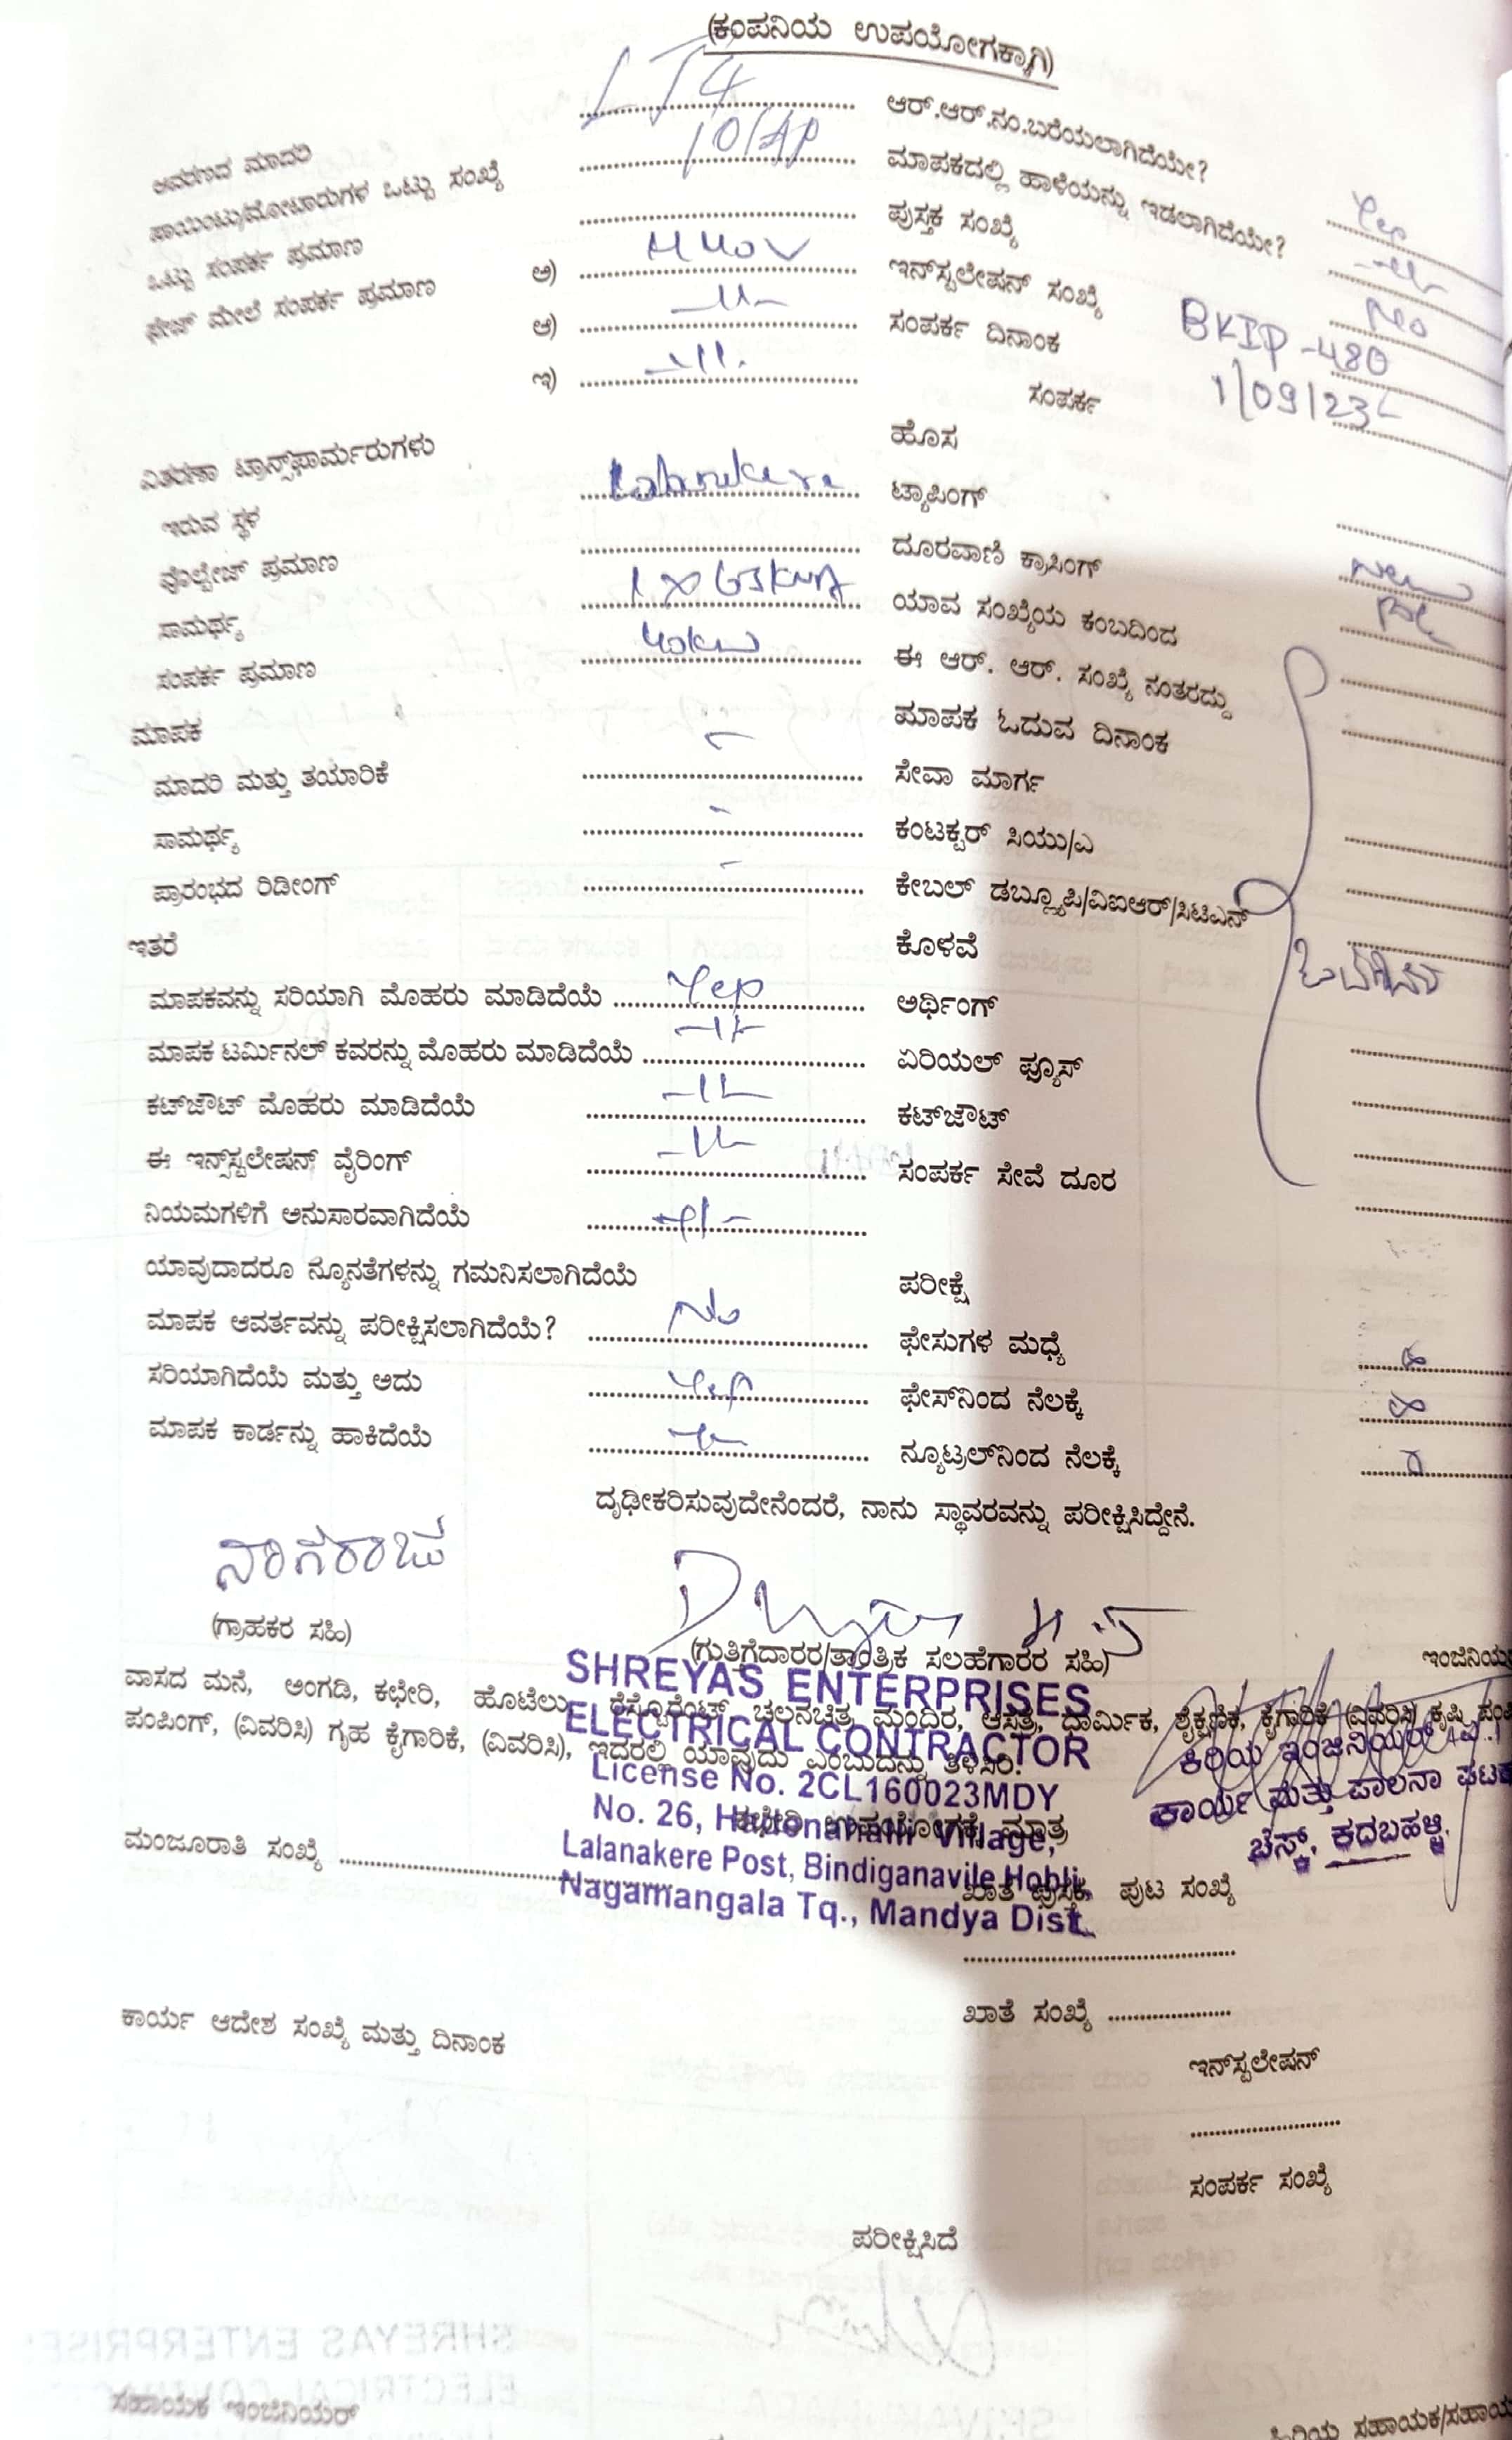 (ಕಂಪನಿಯ ಉಪಯೋಗಕ್ಕಾಗಿ)
ಮಾದರಿ LT4
ಒಟ್ಟು ಸಂಖ್ಯೆ 10HP
ಒಟ್ಟು ಸಂಪರ್ಕ ಪ್ರಮಾಣ
ಫೇಜ್ ಮೇಲೆ ಸಂಪರ್ಕ ಪ್ರಮಾಣ ಅ)
ಆ) -11-
ಇ) -11-
ವಿತರಣಾ ಟ್ರಾನ್ಸ್‌ಫಾರ್ಮರುಗಳು
ಇರುವ ಸ್ಥಳ
ವೊಲ್ಟೇಜ್ ಪ್ರಮಾಣ
ಸಾಮರ್ಥ್ಯ 1 X 63KVA
ಸಂಪರ್ಕ ಪ್ರಮಾಣ 40KW
ಮಾಪಕ
ಮಾದರಿ ಮತ್ತು ತಯಾರಿಕೆ -
ಸಾಮರ್ಥ್ಯ -
ಪ್ರಾರಂಭದ ರಿಡೀಂಗ್ -
ಇತರೆ
ಮಾಪಕವನ್ನು ಸರಿಯಾಗಿ ಮೊಹರು ಮಾಡಿದೆಯೆ Yes
ಮಾಪಕ ಟರ್ಮಿನಲ್ ಕವರನ್ನು ಮೊಹರು ಮಾಡಿದೆಯೆ -11-
ಕಟ್‌ಜೌಟ್ ಮೊಹರು ಮಾಡಿದೆಯೆ -11-
ಈ ಇನ್ಸ್‌ಸ್ಟಲೇಷನ್ ವೈರಿಂಗ್ -11-
ನಿಯಮಗಳಿಗೆ ಅನುಸಾರವಾಗಿದೆಯೆ -11-
ಯಾವುದಾದರೂ ನ್ಯೂನತೆಗಳನ್ನು ಗಮನಿಸಲಾಗಿದೆಯೆ
ಮಾಪಕ ಆವರ್ತವನ್ನು ಪರೀಕ್ಷಿಸಲಾಗಿದೆಯೆ? No
ಸರಿಯಾಗಿದೆಯೆ ಮತ್ತು ಅದು Yes
ಮಾಪಕ ಕಾರ್ಡನ್ನು ಹಾಕಿದೆಯೆ
ಆರ್.ಆರ್.ನಂ.ಬರೆಯಲಾಗಿದೆಯೇ? Yes
ಮಾಪಕದಲ್ಲಿ ಹಾಳೆಯನ್ನು ಇಡಲಾಗಿದೆಯೇ? -11-
ಪುಸ್ತಕ ಸಂಖ್ಯೆ No
ಇನ್‌ಸ್ಟಲೇಷನ್ ಸಂಖ್ಯೆ BKIP-480
ಸಂಪರ್ಕ ದಿನಾಂಕ 1/09/23
ಸಂಪರ್ಕ
ಹೊಸ New
ಟ್ಯಾಪಿಂಗ್
ದೂರವಾಣಿ ಕ್ರಾಸಿಂಗ್
ಯಾವ ಸಂಖ್ಯೆಯ ಕಂಬದಿಂದ
ಈ ಆರ್. ಆರ್. ಸಂಖ್ಯೆ ನಂತರದ್ದು
ಮಾಪಕ ಓದುವ ದಿನಾಂಕ
ಸೇವಾ ಮಾರ್ಗ
ಕಂಟಕ್ಟರ್ ಸಿಯು/ಎ
ಕೇಬಲ್ ಡಬ್ಲ್ಯೂಪಿ/ವಿಐಆರ್/ಸಿಟಿಎಸ್
ಕೊಳವೆ
ಅರ್ಥಿಂಗ್
ಏರಿಯಲ್ ಫ್ಯೂಸ್
ಕಟ್‌ಜೌಟ್
ಸಂಪರ್ಕ ಸೇವೆ ದೂರ
ಪರೀಕ್ಷೆ
ಫೇಸುಗಳ ಮಧ್ಯೆ
ಫೇಸ್‌ನಿಂದ ನೆಲಕ್ಕೆ
ನ್ಯೂಟ್ರಲ್‌ನಿಂದ ನೆಲಕ್ಕೆ
ದೃಢೀಕರಿಸುವುದೇನೆಂದರೆ, ನಾನು ಸ್ಥಾವರವನ್ನು ಪರೀಕ್ಷಿಸಿದ್ದೇನೆ.
ನಾಗರಾಜು
(ಗ್ರಾಹಕರ ಸಹಿ)
(ಗುತ್ತಿಗೆದಾರರ/ತಾಂತ್ರಿಕ ಸಲಹೆಗಾರರ ಸಹಿ)
SHREYAS ENTERPRISES
ELECTRICAL CONTRACTOR
License No. 2CL160023MDY
No. 26, Village,
Lalanakere Post, Bindiganavile Hobli,
Nagamangala Tq., Mandya Dist.
ವಾಸದ ಮನೆ, ಅಂಗಡಿ, ಕಛೇರಿ, ಹೊಟೆಲು, ರೆಸ್ಟೊರೆಂಟ್, ಚಲನಚಿತ್ರ ಮಂದಿರ, ಆಸ್ಪತ್ರೆ, ಧಾರ್ಮಿಕ, ಶೈಕ್ಷಣಿಕ, ಕೈಗಾರಿಕೆ (ವಿವರಿಸಿ) ಕೃಷಿ
ಪಂಪಿಂಗ್, (ವಿವರಿಸಿ) ಗೃಹ ಕೈಗಾರಿಕೆ, (ವಿವರಿಸಿ), ಇದರಲ್ಲಿ ಯಾವುದು ಎಂಬುದನ್ನು ತಿಳಿಸಿರಿ.
ಕಿರಿಯ ಇಂಜಿನಿಯರ್
ಕಾರ್ಯ ಮತ್ತು ಪಾಲನಾ ಘಟಕ
ಚೆಸ್ಕ್, ಕದಬಹಳ್ಳಿ.
ಕಛೇರಿ ಉಪಯೋಗಕ್ಕೆ ಮಾತ್ರ
ಮಂಜೂರಾತಿ ಸಂಖ್ಯೆ
ಖಾತೆ ಪುಸ್ತಕ ಪುಟ ಸಂಖ್ಯೆ
ಕಾರ್ಯ ಆದೇಶ ಸಂಖ್ಯೆ ಮತ್ತು ದಿನಾಂಕ
ಖಾತೆ ಸಂಖ್ಯೆ
ಇನ್‌ಸ್ಟಲೇಷನ್
ಸಂಪರ್ಕ ಸಂಖ್ಯೆ
ಪರೀಕ್ಷಿಸಿದೆ
ಸಹಾಯಕ ಇಂಜಿನಿಯರ್
ಹಿರಿಯ ಸಹಾಯಕ/